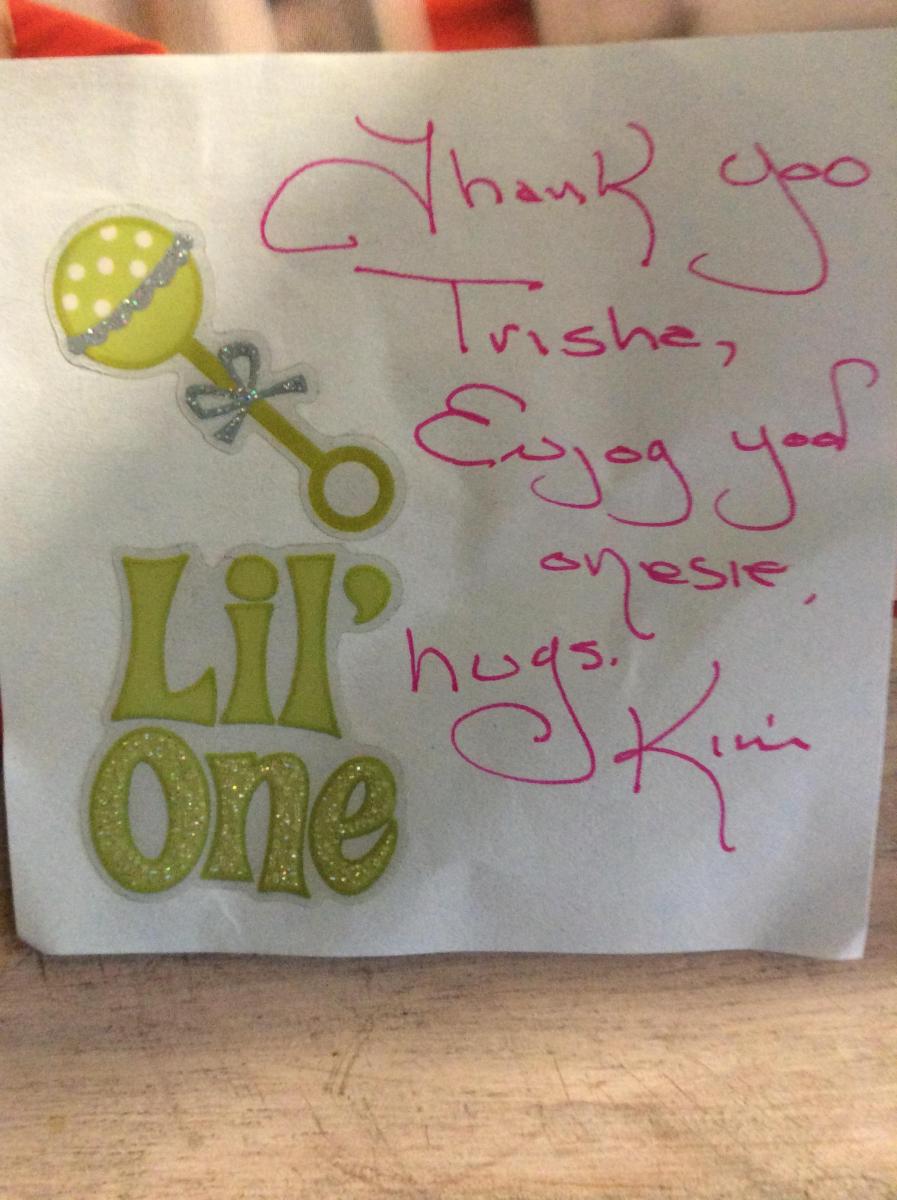 Thank you
Trisha,
Enjoy your
onesie.
hugs.
Kim
Lil'
One